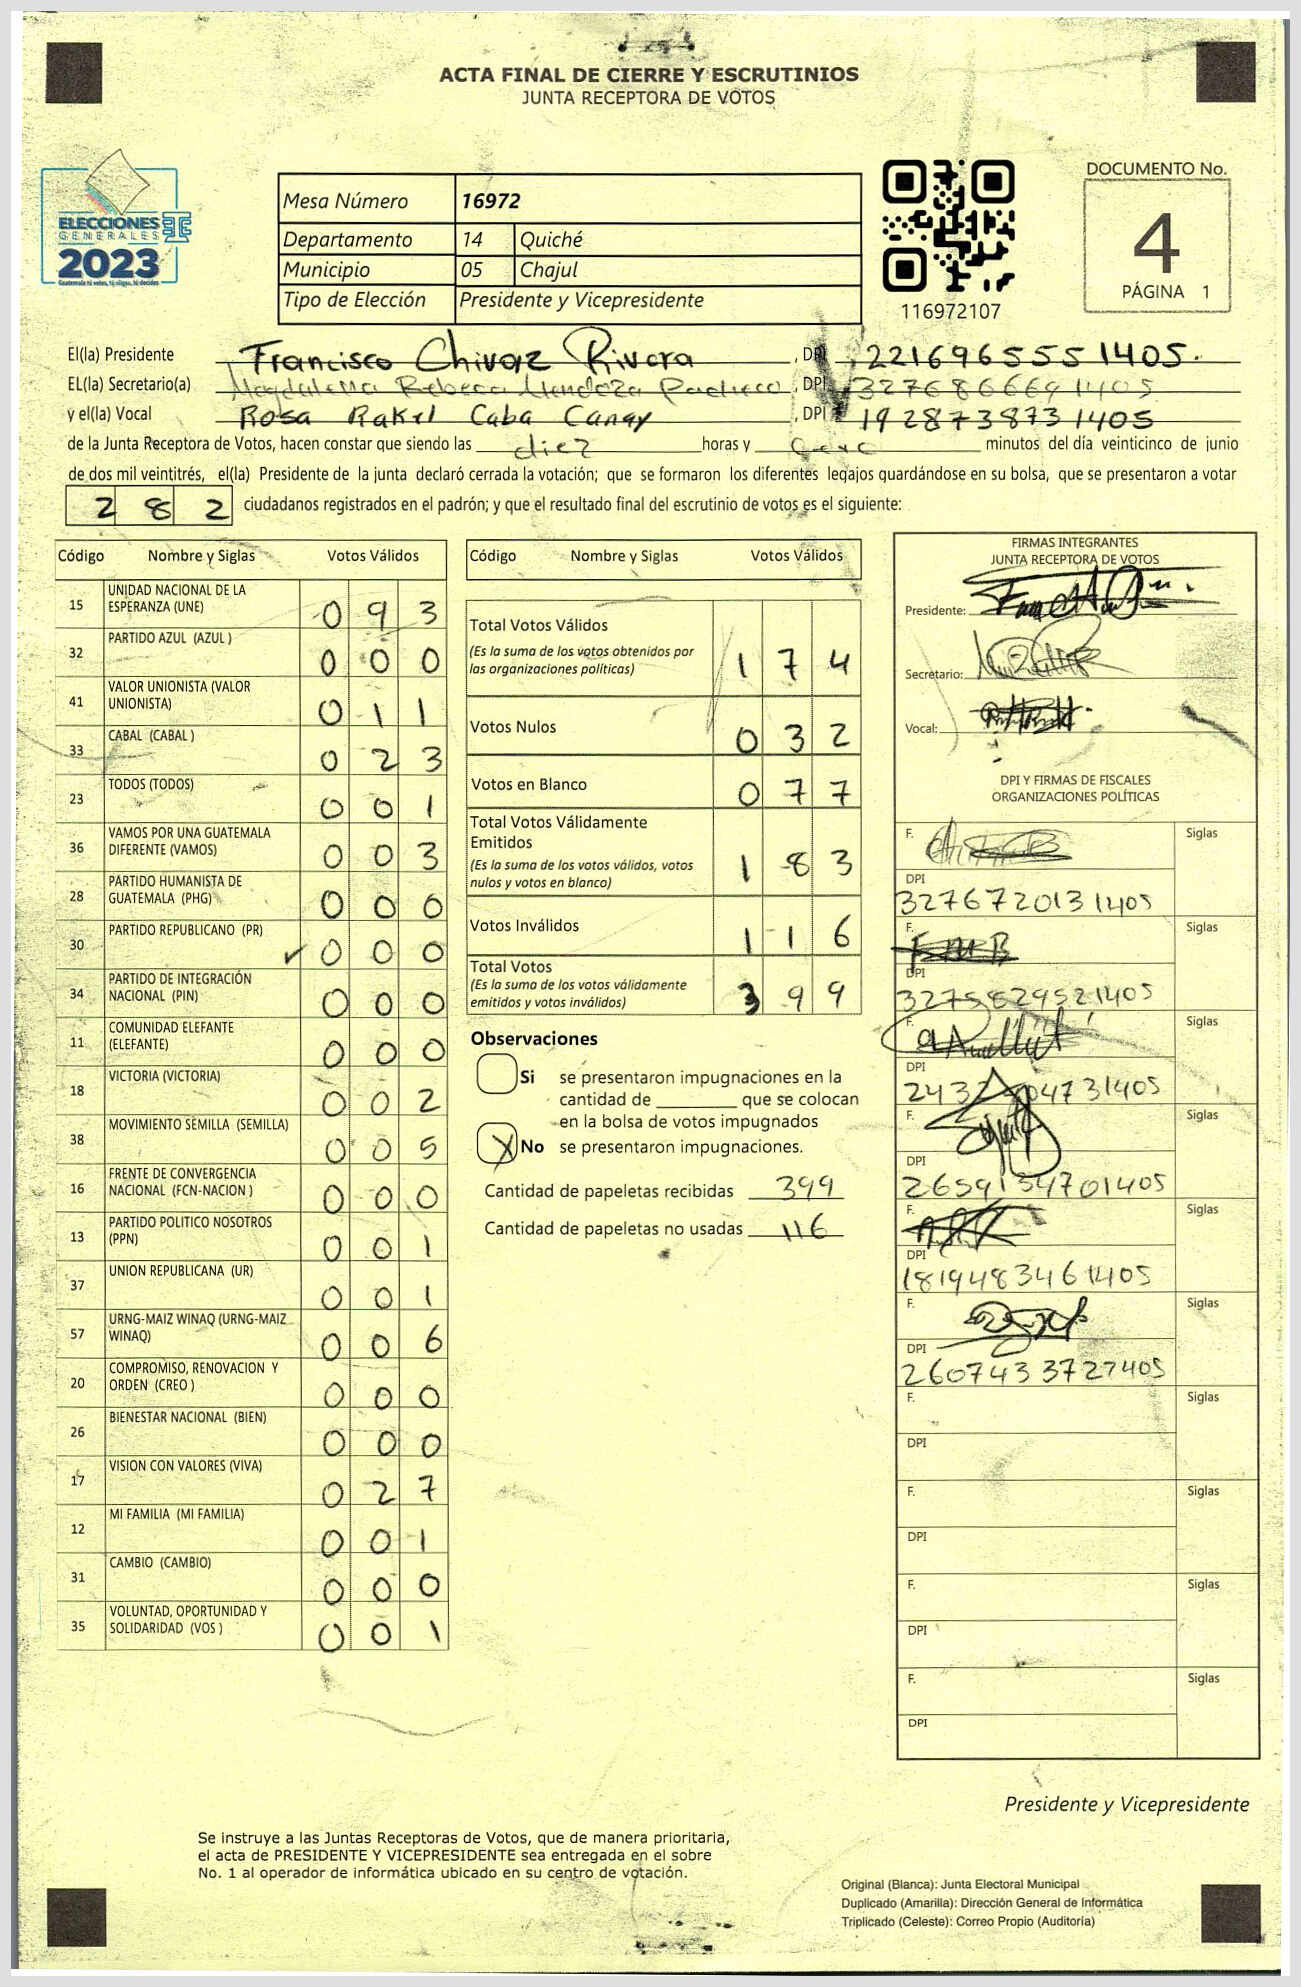 ACTA FINAL DE CIERRE Y ESCRUTINIOS
JUNTA RECEPTORA DE VOTOS
ELECCIONES
GENERALES
2023
Guatemala tú votas, tú eliges, tú decides
Mesa Número 16972
Departamento 14 Quiché
Municipio 05 Chajul
Tipo de Elección Presidente y Vicepresidente
116972107
DOCUMENTO No.
4
PÁGINA 1
El(la) Presidente Francisco Chivaz Rivera, DPI 2216965551405.
EL(la) Secretario(a) Magdalena Rebeca Mendoza Pacheco, DPI 3276866691405
y el(la) Vocal Rosa Rakel Caba Canay, DPI 1928738731405
de la Junta Receptora de Votos, hacen constar que siendo las diez horas y cero minutos del día veinticinco de junio
de dos mil veintitrés, el(la) Presidente de la junta declaró cerrada la votación; que se formaron los diferentes legajos guardándose en su bolsa, que se presentaron a votar
282 ciudadanos registrados en el padrón; y que el resultado final del escrutinio de votos es el siguiente:
Código Nombre y Siglas Votos Válidos
15 UNIDAD NACIONAL DE LA ESPERANZA (UNE) 093
32 PARTIDO AZUL (AZUL ) 000
41 VALOR UNIONISTA (VALOR UNIONISTA) 011
33 CABAL (CABAL ) 023
23 TODOS (TODOS) 001
36 VAMOS POR UNA GUATEMALA DIFERENTE (VAMOS) 003
28 PARTIDO HUMANISTA DE GUATEMALA (PHG) 000
30 PARTIDO REPUBLICANO (PR) 000
34 PARTIDO DE INTEGRACIÓN NACIONAL (PIN) 000
11 COMUNIDAD ELEFANTE (ELEFANTE) 000
18 VICTORIA (VICTORIA) 002
38 MOVIMIENTO SEMILLA (SEMILLA) 005
16 FRENTE DE CONVERGENCIA NACIONAL (FCN-NACION ) 000
13 PARTIDO POLITICO NOSOTROS (PPN) 001
37 UNION REPUBLICANA (UR) 001
57 URNG-MAIZ WINAQ (URNG-MAIZ WINAQ) 006
20 COMPROMISO, RENOVACION Y ORDEN (CREO ) 000
26 BIENESTAR NACIONAL (BIEN) 000
17 VISION CON VALORES (VIVA) 027
12 MI FAMILIA (MI FAMILIA) 001
31 CAMBIO (CAMBIO) 000
35 VOLUNTAD, OPORTUNIDAD Y SOLIDARIDAD (VOS ) 001
Código Nombre y Siglas Votos Válidos
Total Votos Válidos 174
(Es la suma de los votos obtenidos por
las organizaciones políticas)
Votos Nulos 032
Votos en Blanco 077
Total Votos Válidamente
Emitidos 183
(Es la suma de los votos válidos, votos
nulos y votos en blanco)
Votos Inválidos 116
Total Votos 399
(Es la suma de los votos válidamente
emitidos y votos inválidos)
Observaciones
Si se presentaron impugnaciones en la
cantidad de ________ que se colocan
en la bolsa de votos impugnados
X No se presentaron impugnaciones.
Cantidad de papeletas recibidas 399
Cantidad de papeletas no usadas 116
FIRMAS INTEGRANTES
JUNTA RECEPTORA DE VOTOS
Presidente:
Secretario:
Vocal:
DPI Y FIRMAS DE FISCALES
ORGANIZACIONES POLÍTICAS
F. Siglas
DPI
3276720131405
F. Siglas
DPI
3275829521405
F. Siglas
DPI
F. Siglas
DPI
2659134701405
F. Siglas
DPI
1819483461405
F. Siglas
DPI
2607433727405
F. Siglas
DPI
F. Siglas
DPI
F. Siglas
DPI
F. Siglas
DPI
Presidente y Vicepresidente
Se instruye a las Juntas Receptoras de Votos, que de manera prioritaria,
el acta de PRESIDENTE Y VICEPRESIDENTE sea entregada en el sobre
No. 1 al operador de informática ubicado en su centro de votación.
Original (Blanca): Junta Electoral Municipal
Duplicado (Amarilla): Dirección General de Informática
Triplicado (Celeste): Correo Propio (Auditoría)